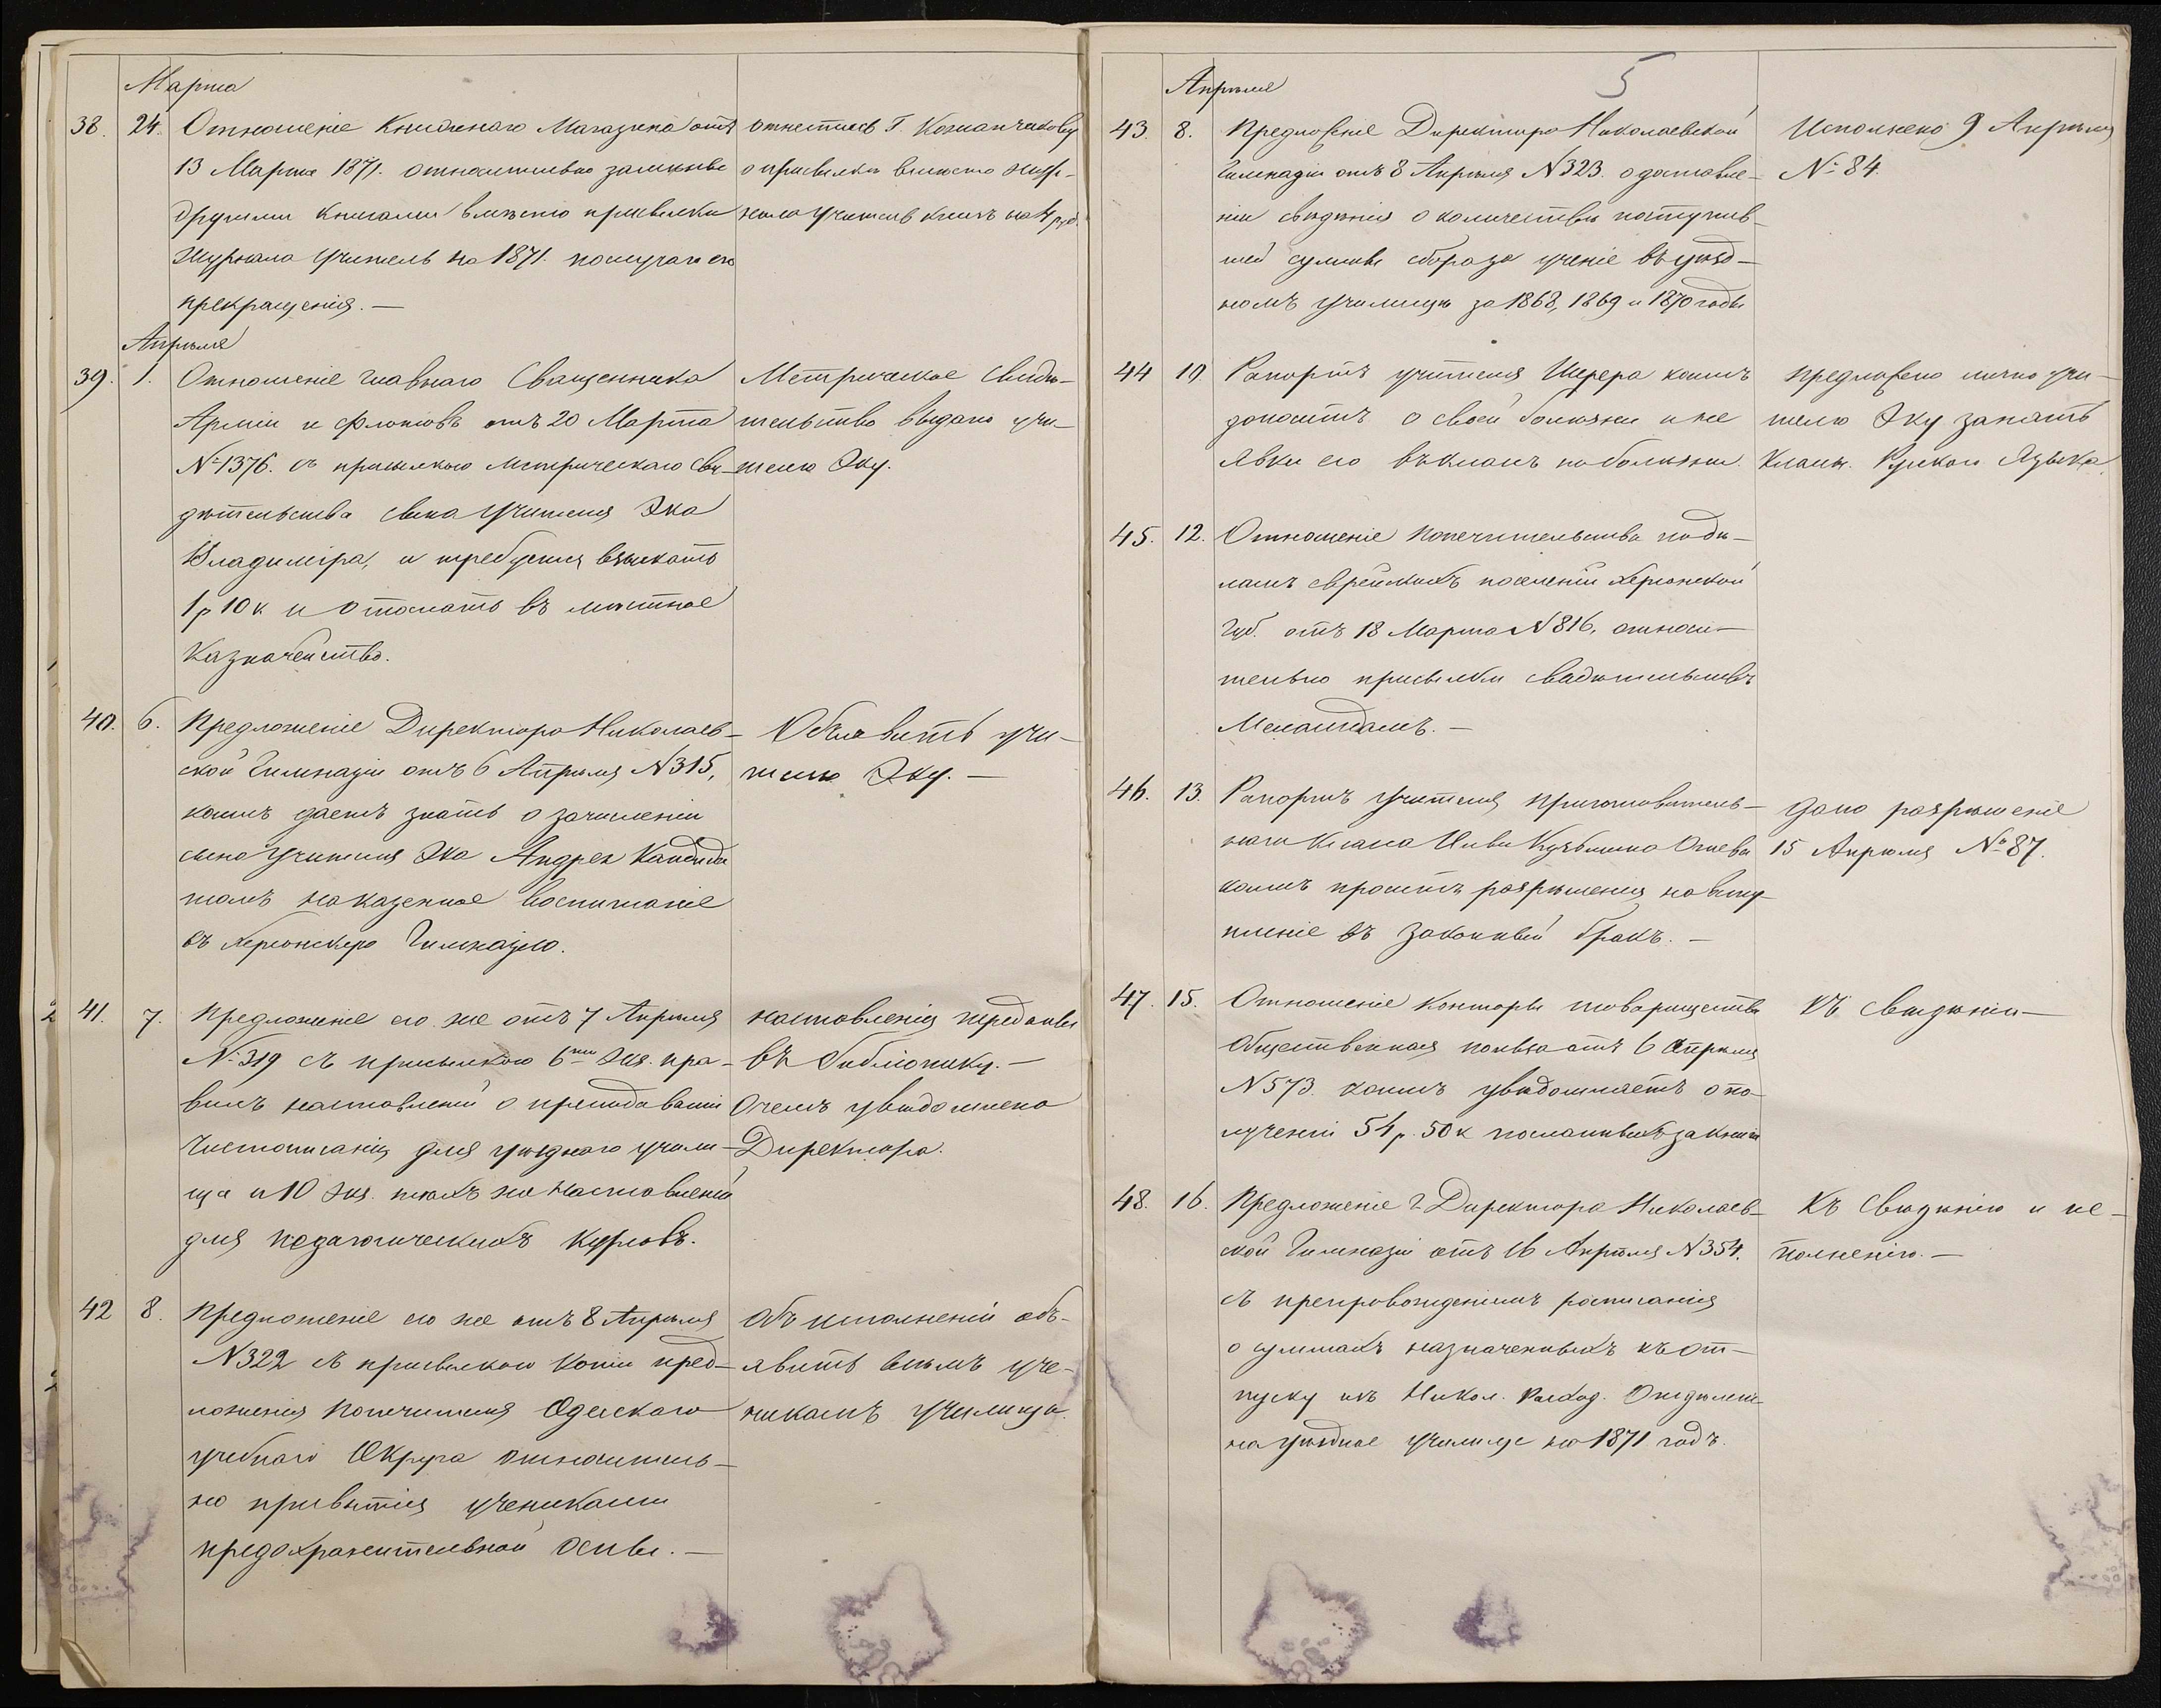 Марта
38. 24. Отношеніе Книжнаго Магазина отъ
13 Марта 1871. относительно замѣны
другими книгами вмѣсто присылки
журнала Учитель на 1871. по случаю его
прекращенія. —
отнестись Г. Кожанчикову
о присылкѣ вмѣсто жур-
нала Учитель книгъ на 4 руб.
Апрѣля
39. 1. Отношеніе главнаго Священника
Арміи и Флотовъ отъ 20 Марта
№ 1376. съ присылкою Метрическаго Сви-
дѣтельства сына Учителя Эка
Владиміра, и требуется взыскать
1 р 10 к и отослать въ мѣстное
Казначейство.
Метрическое Свидѣ-
тельство выдано учи-
телю Эку.
40. 6. Предложеніе Директора Николаев-
ской Гимназіи отъ 6 Апрѣля № 315,
коимъ даетъ знать о зачисленіи
сына Учителя Эка Андрея Кандида
томъ на казенное воспитаніе
въ Херсонскую Гимназію.
Объявить учи-
телю Эку. —
41. 7. Предложеніе его же отъ 7 Апрѣля
№ 319 съ присылкою 6ти экз. пра-
вилъ наставленій о преподаваніи
Чистописанія для уѣзднаго учили-
ща и 10 экз. тѣхъ же Наставленій
для педагогическихъ Курсовъ.
наставленія переданы
въ библіотеку. —
О чемъ увѣдомлено
Директора.
42 8. Предложеніе его же отъ 8 Апрѣля
№ 322 съ присылкою копіи пред-
ложенія Попечителя Одесскаго
учебнаго Округа относитель-
но привитія учениками
предохранительной оспы. —
Объ исполненіи объ-
явить всѣмъ уче-
никамъ училища.
5
Апрѣля
43. 8. Предложеніе Директора Николаевской
Гимназіи отъ 8 Апрѣля № 323. о доставле-
ніи свѣдѣнія о количествѣ поступив-
шей суммы сбора за ученіе въ уѣзд-
номъ училищѣ за 1868, 1869 и 1870 годы
Исполнено 9 Апрѣля
№ 84.
44 10 Рапортъ учителя Шерера коимъ
доноситъ о своей болѣзни и не
явки его въ классъ по болѣзни.
предложено лично учи-
телю Эку занять
классы. Рускаго Языка
45. 12. Отношеніе Попечительства надъ
еврейскихъ поселеній Херсонской
Губ. отъ 18 Марта № 816, относи-
тельно присылки свидѣтельствъ
46. 13. Рапортъ учителя приготовитель-
наго Класса Ильи Кузьмина Огнева
коимъ проситъ разрѣшенія на всту-
пленіе въ законный бракъ. —
Дано разрѣшеніе
15 Апрѣля № 87.
47. 15. Отношеніе Конторы товарищества
Общественная польза отъ 6 Апрѣля
№ 573. коимъ увѣдомляетъ о по-
лученіи 54 р. 50 к посланныхъ за книги
Къ свѣдѣнію —
48. 16. Предложеніе Г. Директора Николаев-
ской Гимназіи отъ 16 Апрѣля № 354.
съ препровожденіемъ росписанія
о суммахъ назначенныхъ къ от-
пуску изъ Никол. Расход. Отдѣленія
на уѣздное училище на 1871 годъ.
Къ Свѣдѣнію и ис-
полненію. —